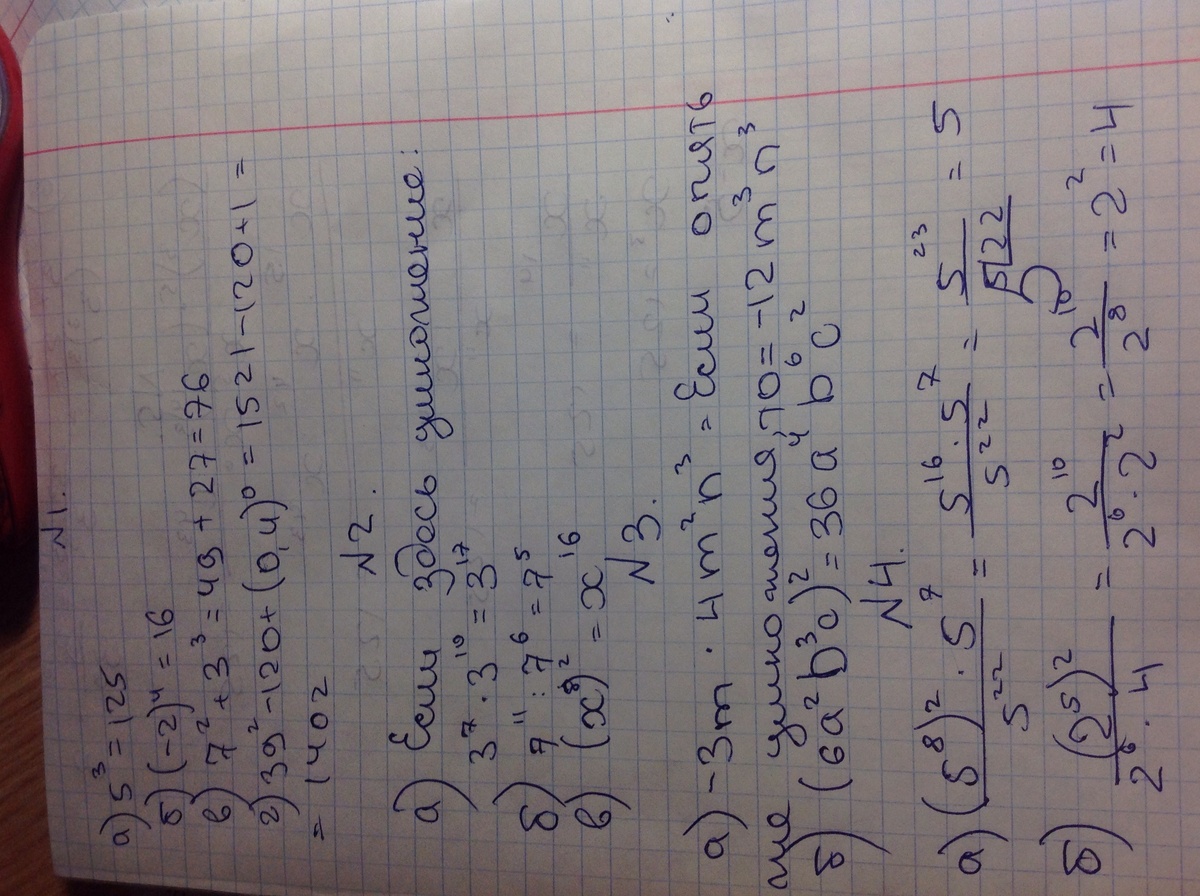 N1.
а) 5³ = 125
б) (-2)⁴ = 16
в) 7² + 3³ = 49 + 27 = 76
г) 39² - 120 + (0,4)⁰ = 1521 - 120 + 1 =
= 1402
N2.
а) Если здесь умножение:
3⁷ · 3¹⁰ = 3¹⁷
б) 7¹¹ : 7⁶ = 7⁵
в) (x⁸)² = x¹⁶
N3.
а) -3m · 4m²n³ = Если опять
же умножения, то = -12m³n³
б) (6a²b³c)² = 36a⁴b⁶c²
N4.
а) (5⁸)² · 5⁷ / 5²² = 5¹⁶ · 5⁷ / 5²² = 5²³ / 5²² = 5
б) (2⁵)² / 2⁶ · 4 = 2¹⁰ / 2⁶ · 2² = 2¹⁰ / 2⁸ = 2² = 4